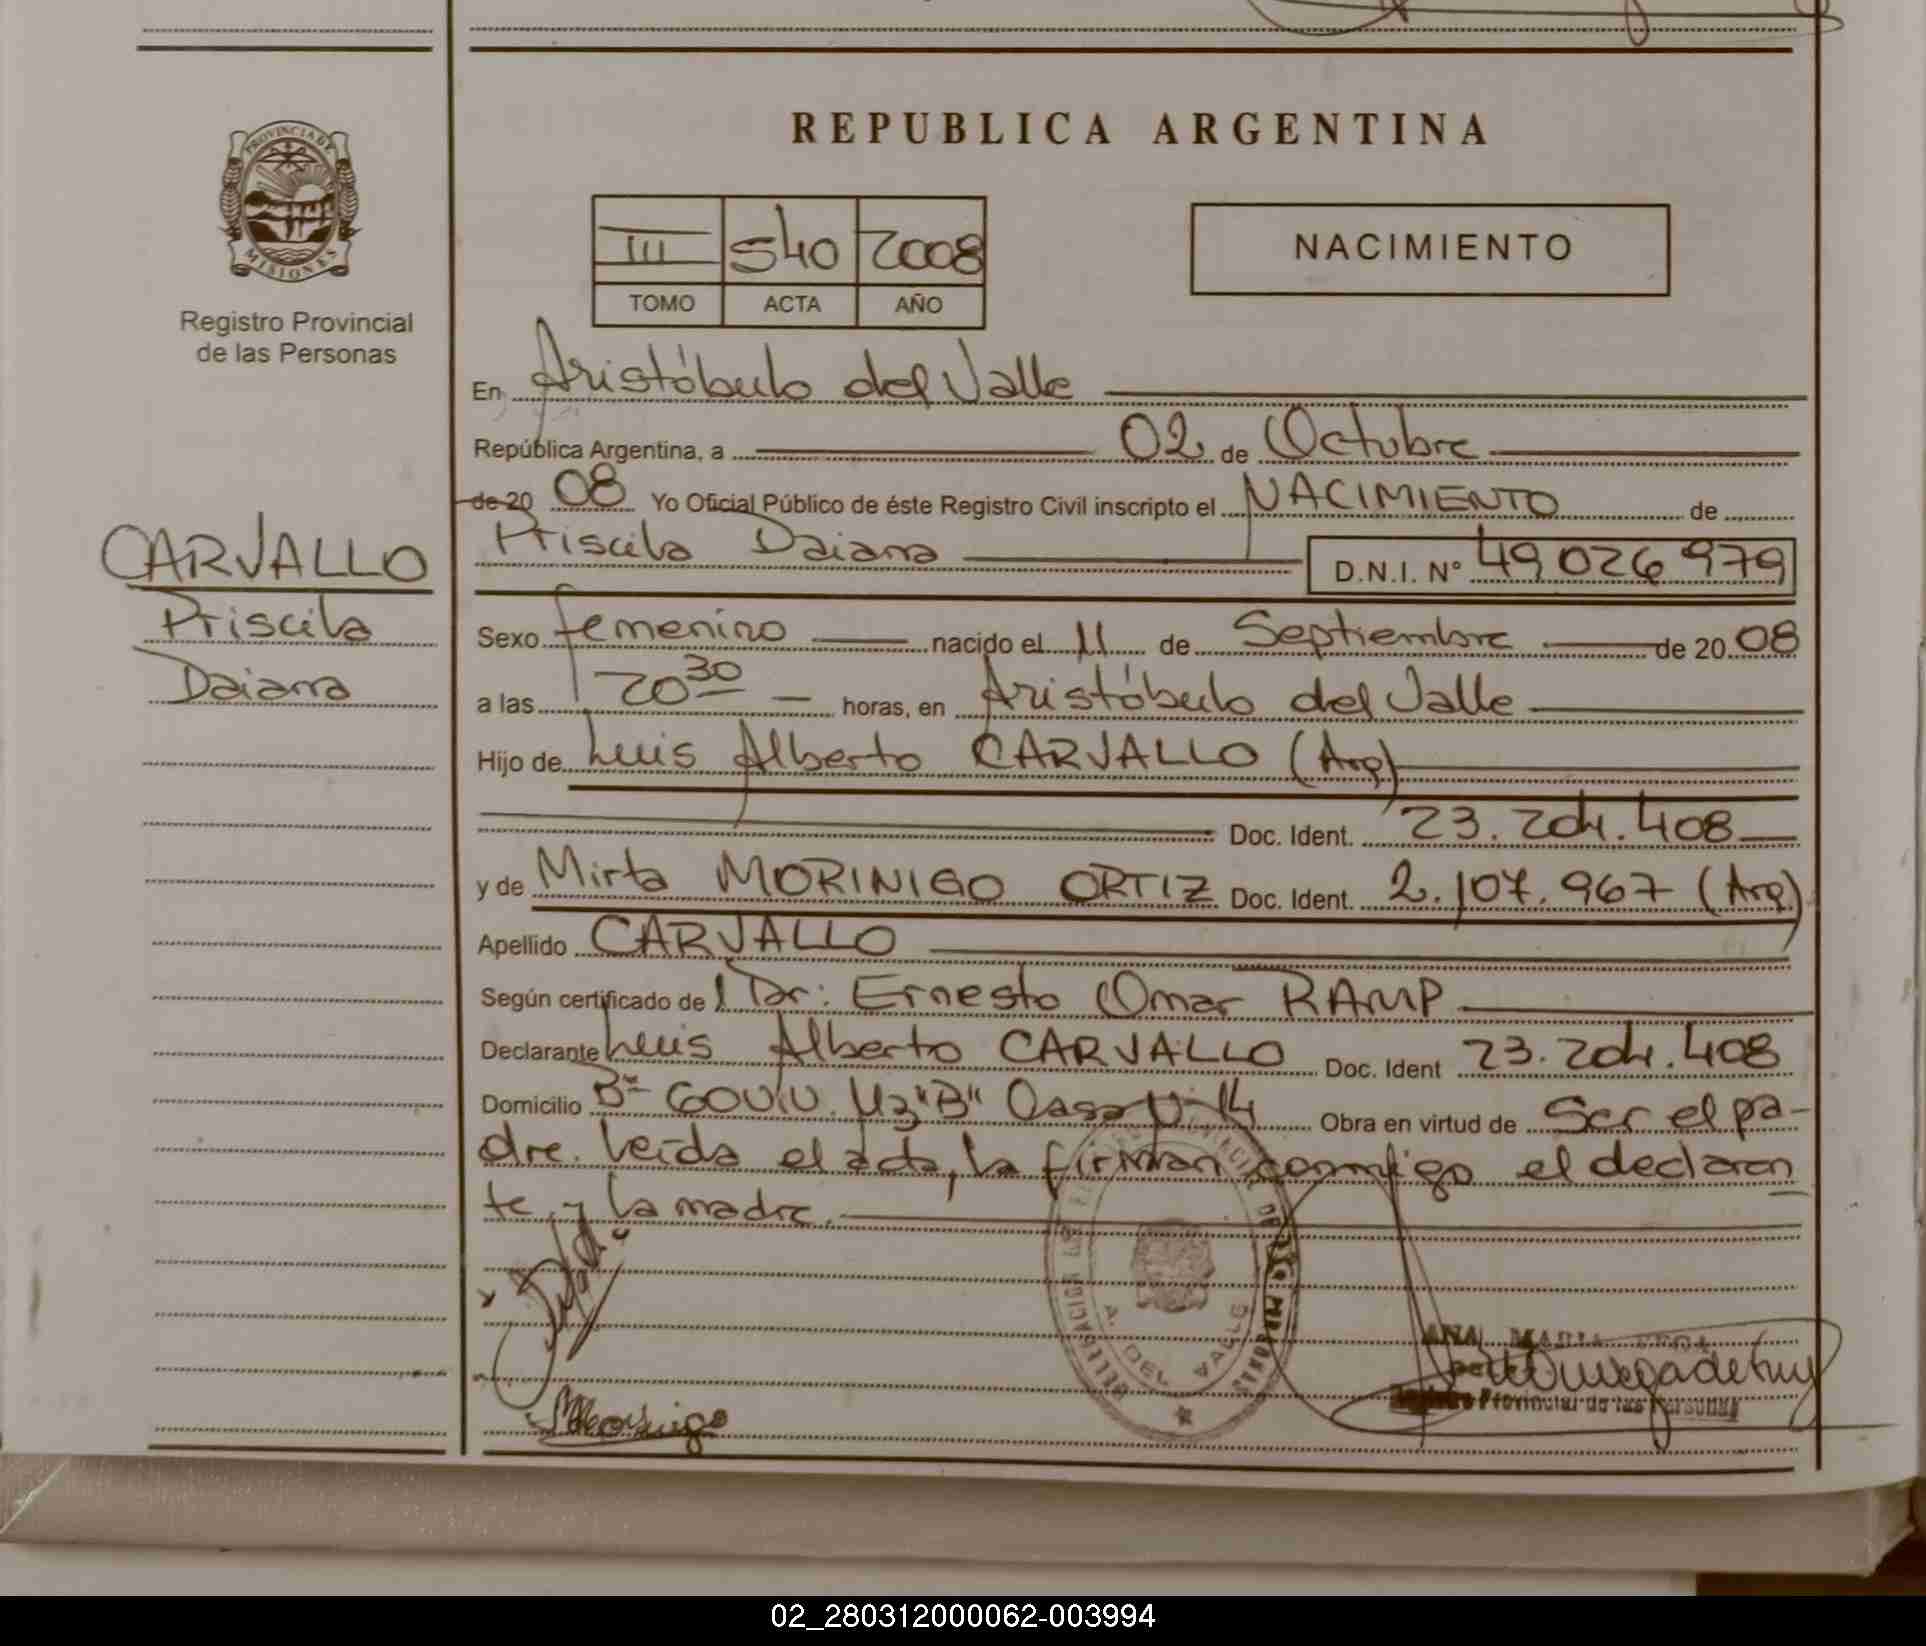 REPUBLICA ARGENTINA
PROVINCIA DE
MISIONES
Registro Provincial
de las Personas
III 540 2008
TOMO ACTA AÑO
NACIMIENTO
En Aristóbulo del Valle
República Argentina, a 02 de Octubre
de 20 08 Yo Oficial Público de éste Registro Civil inscripto el NACIMIENTO de
Priscila Daiana D.N.I. N° 49 026 979
CARVALLO
Priscila
Daiana
Sexo femenino nacido el 11 de Septiembre de 20 08
a las 20 30 horas, en Aristóbulo del Valle
Hijo de Luis Alberto CARVALLO (Arg)
Doc. Ident. 23.204.408
y de Mirta MORINIGO ORTIZ Doc. Ident. 2.107.967 (Arg)
Apellido CARVALLO
Según certificado de Dr: Ernesto Omar RAMP
Declarante Luis Alberto CARVALLO Doc. Ident 23.204.408
Domicilio B° Mz "B" Casa 14 Obra en virtud de Ser el pa-
dre. Leída el acta, la firman conmigo el declaran
te y la madre.
A. DEL VALLE
ANA MARIA
Morinigo
Provincial de las Personas
02_280312000062-003994